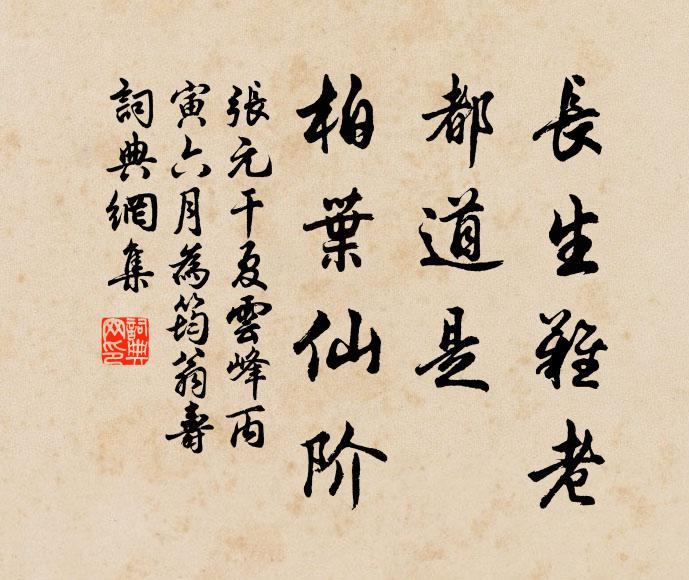 長生難老
都道是
柏葉仙阶
張元干夏雲峰丙
寅六月為筠翁壽
詞典網集
詞典
網印